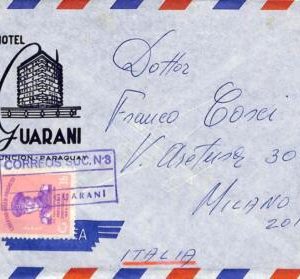 HOTEL
GUARANI
UNCION - PARAGUAY
CORREOS SUC. Nº 3
GUARANI
EA
Dottor
Franco Cosci
V. Aretusa 30
MILANO
201
ITALIA